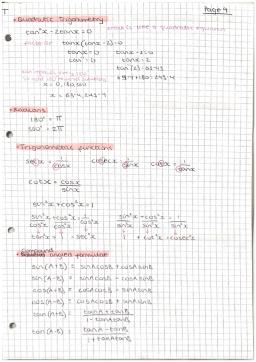 Page 4
• Quadratic Trigonometry
tan²x - 2tanx = 0
factorise tanx(tanx - 2) = 0
tanx = 0 tanx - 2 = 0
tanx = 2
x = 0, 180, 360
x = 63.4, 243.4
• Radians
180° = π
360° = 2π
• Trigonometric functions
secx = 1/cosx cosecx = 1/sinx cotx = 1/tanx
cotx = cosx/sinx
sin²x + cos²x = 1
sin²x/cos²x + cos²x/cos²x = 1/cos²x sin²x/sin²x + cos²x/sin²x = 1/sin²x
tan²x + 1 = sec²x 1 + cot²x = cosec²x
• Compound angled formulae
sin(A+B) = sinAcosB + cosAsinB
sin(A-B) = sinAcosB - cosAsinB
cos(A+B) = cosAcosB - sinAsinB
cos(A-B) = cosAcosB + sinAsinB
tan(A+B) = tanA + tanB / 1 - tanAtanB
tan(A-B) = tanA - tanB / 1 + tanAtanB